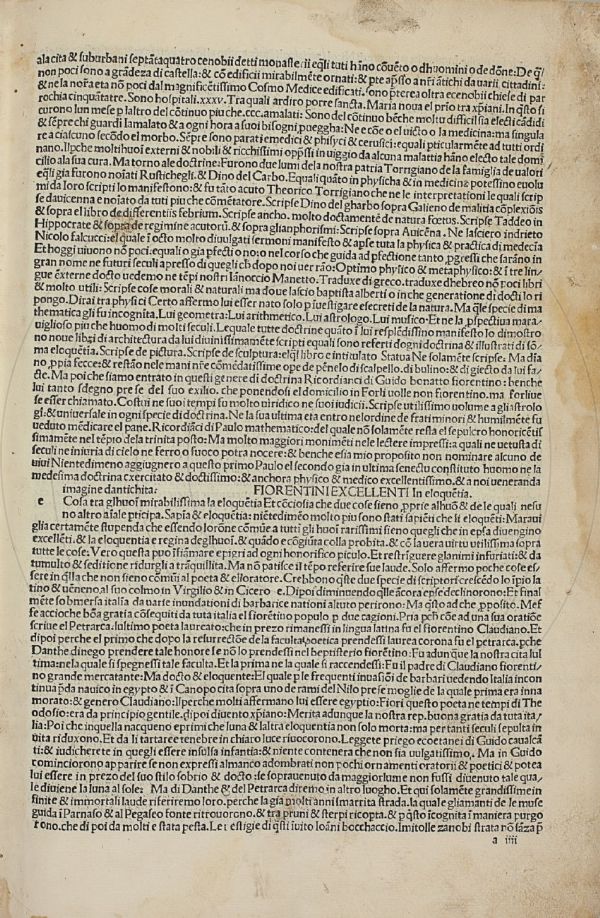 ala cita & suburbani septãtaquatro cenobii detti monasterii eq̃li tuti hãno cõuẽto o dhuomini o de dõne: De q̃li
non poci sono a grãdeza di castella: & cõ edificii mirabilmẽte ornati: & pte apsso a nr̃i ãtichi da uarii cittadini:
& ne la nor̃a eta nõ poci dal magnificẽtissimo Cosmo Medice edificati. sono pterea oltra ecenobii chiese di par
rochia cinquãtatre. Sono hospitali .xxxv. Tra quali ardiro porre sancta Maria noua el prio tra xp̃iani. In q̃sto si
curono lun mese p laltro del cõtinuo piu che .ccc. amalati: Sono del cõtinuo bẽche molto difficil sia electi cãdidi
& sẽpre chi guardi lamalato & a ogni hora a suoi bisogni pueggha: Ne cõe o el uicto o la medicina: ma singula
re a ciascuno secõdo el morbo. Sẽpre sono parati emedici & phisyci & cerusici: equali pticularmẽte ad tutti ordi
nano. Ilpche molti huoĩ externi & nobili & ricchissimi opp̃ssi in uiggio da alcuna malattia hãno electo tale domi
cilio ala sua cura. Ma torno ale doctrine: Furono due lumi de nostra patria Torrigiano de la famiglia de ualori
eq̃li gia furono noĩati Rustichegli. & Dino del Carbo. Equali quãto in physicha & in medicina potessino euolu
mi da loro scripti lo manifestono: & fu tãto acuto Theorico Torrigiano che ne le interpretationi le quali scrip
se dauicenna e noĩato da tuti piu che cõmẽtatore. Scripse Dino del gharbo sopra Galieno de malitia cõplexiõis
& sopra el libro de differentiis febrium. Scripse ancho. molto doctamente de natura fœtus. Scripse Taddeo in
Hippocrate & sopra de regimine acutorũ. & sopra glianphorismi: Scripse sopra Auicẽna. Ne lasciero indrieto
Nicolo falcucci: el quale ĩ octo molto diuulgati sermoni manifesto & apse tuta la physica & practica di medecĩa
Et hoggi uiuono nõ poci: equali o gia pfecti o no: o nel corso che guida ad pfectione tanto, pgressi che sarãno in
gran nome ne futuri seculi apresso di quegli ch̃ dopo noi uerrão: Optimo physico & metaphysico: & ĩ tre lin/
gue externe docto uedemo ne tẽpi nostri Iannoccio Manetto: Traduxe di greco. traduxe dhebreo nõ poci libri
& molto utili: Scripse cose morali & naturali ma doue lascio baptista alberti o in che generatione di docti lo ri
pongo. Dirai tra physici Certo affermo lui esser nato solo p iuestigare esecreti de la natura. Ma q̃le specie di ma
thematica gli fu incognita. Lui geometra: Lui arithmetico. Lui astrologo. Lui musico: Et ne la p̃spectiua mara/
uiglioso piu che huomo di molti seculi. Le quale tutte doctrine quãto ĩ lui resplẽdissino manifesto lo dimostro/
no noue libri di architectura da lui diuinissimamẽte scripti equali sono referti dogni doctrina & illustrati di sõ/
ma eloquẽtia. Scripse de pictura. Scripse de sculptura: elq̃l libro e intitulato Statua Ne solamẽte scripse: Ma dia
no, ppia fecce: & restão nele mani nr̃e cõmẽdatissime ope de pẽnelo di scalpello. di bulino: & di giecto da lui fa/
cte. Ma poi che siamo entrato in questi genere di doctrina Ricordianci di Guido bonatto fiorentino: benche
lui tanto sdegno prese del suo exilio. che ponendosi el domicilio in Forli uolle non fiorentino. ma forliue
se esser chiamato. Costui ne suoi tempi fu molto uiridico ne suoi iudicii. Scripse utilissimo uolume a gliastrolo
gi: & uniuersale in ogni specie di doctrina. Ne la sua ultima eta entro ne lordine de frati minori & humilmẽte fu
ueduto mẽdicare el pane. Ricordiãci di Paulo mathematico: del quale nõ solamẽte resta el sepulcro honorificẽtis
simamẽte nel tẽpio dela trinita posto: Ma molto maggiori monimẽti nele lectere impressi: a quali ne uetusta di
seculi ne iniuria di cielo ne ferro o fuoco potra nocere: & benche esia mio proposito non nominare alcuno de
uiui Nientedimeno aggiugnero a questo primo Paulo el secondo gia in ultima senectu constituto huomo ne la
medesima doctrina exercitato & doctissimo: & anchora physico & medico excellentissimo. & a noi ueneranda
imagine dantichita: FIORENTINI EXCELLENTI In eloquẽtia.
e Cosa tra glhuoĩ mirabilissima la eloquẽtia Et cẽciosia che due cose sieno, pprie alhuõ & de le quali nesu
no altro aĩale pticipa. Sapiẽtia & eloquẽtia: nietedimẽo molto piu sono stati sapiẽti che li eloquẽti: Maraui
glia certamẽte stupenda che essendo lorõne cõmũe a tutti gli huoĩ rarissimi sieno quegli che in epsa diuengino
excellẽti. & la eloquentia e regina deglhuoĩ. & quãdo e cõgiũta colla probita. & cõ la uera uirtu utilissima sopra
tutte le cose: Vero questa puo ĩfiamare epigri ad ogni honorifico piculo: Et restriguere glanimi infuriati: & da
tumulto & seditione ridurgli a trãquillita. Ma nõ patisce il tẽpo referire sue laude. Solo affermo poche cose es/
sere in q̃lla che non sieno comũi al poeta & elloratore. Crebbono q̃ste due specie di scriptori crescẽdo lo ĩpio la
tino & uẽneno, al suo colmo in Virgilio & in Cicero e. Dipoi diminuendo q̃lle ãcora epse declinorono: Et final
mẽte sobmersa italia da uarie inundationi di barbarice nationi altuto perirono: Ma q̃sto ad che, pposito. Mes
se accioche bõa gratia cõsequiti da tuta italia el fiorẽtino populo p due cagioni. Pria pch̃ cõe ad una sua oratiõe
scriue el Petrarca. lultimo poeta laureato: che in prezo rimanessi in lingua latina fu el fiorentino Claudiano. Et
dipoi perche el primo che dopo la resurrectõe de la facultã poetica prendessi laurea corona fu el petrarca. pche
Danthe dinego prendere tale honore se nõ lo prendessi nel baptisterio fiorẽtino: Fu adunque la nostra cita lul
tima: ne la quale si spegnessi tale faculta. Et la prima ne la quale si raccendessi: Fu il padre di Claudiano fiorenti/
no grande mercatante: Ma docto & eloquente: El quale p le frequenti inuasiõi de barbari uedendo Italia incon
tinua p̃da nauico in egypto & ĩ Canopo cita sopra uno de rami del Nilo prese moglie de la quale prima era inna
morato: & genero Claudiano: Ilperche molti affermano lui essere egyptio: Fiori questo poeta ne tempi di The
odosio: era da principio gentile. di poi diuento xp̃iano: Merita adunque la nostra rep. buona gratia da tuta ita/
lia: Poi che inquella nacqueno eprimi che luna & laltra eloquentia non solo morta: ma per tanti seculi sepulta in
uita riduxono. Et da li tartarce tenebre in chiaro luce riuocorono. Leggete priego ecoetanei di Guido caualcã
ti: & iudicherete in quegli essere insulsa infantia: & niente contenera che non sia uulgatissimo. Ma in Guido
cominciorono apparire se non expressi almanco adombrati non pochi ornamenti oratorii & poetici & potea
lui essere in prezo del suo stilo sobrio & docto: se soprauenuto da maggior lume non fussi diuenuto tale qua/
le diuiene la luna al sole: Ma di Danthe & del Petrarca diremo in altro luogho. Et pq̃ui solamẽte grandissime in
finite & immortali laude riferiremo loro. perche la gia molti anni smarrita strada. la quale gliamanti de le muse
guida ĩ Parnaso & al Pegaseo fonte ritrouorono. & tra pruni & sterpi ricopta. & p q̃sto ĩcognita ĩ maniera purgo
rono. che di poi da molti e stata pesta. Le uestigie di q̃sti iuito Ioãni bocchaccio. Imitolle zanobi strata nõ sãza p
a iiii